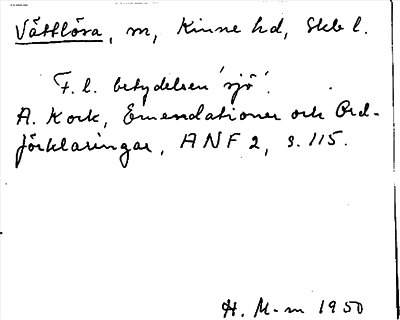 Vättlösa, m, Kinne hd, Skb l.
F. l. betydelsen 'sjö'.
A. Kock, Emendationer och Ord-
förklaringar, ANF 2, s. 115.
H. M-m 1950